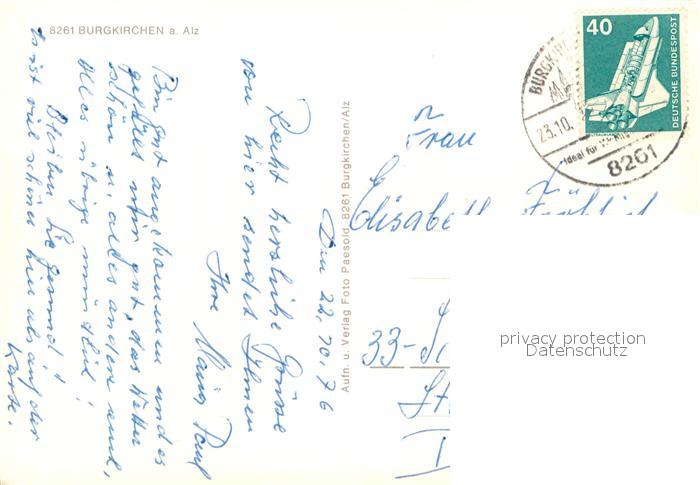 8261 BURGKIRCHEN a. Alz
Den 22.10.76
Recht herzliche Grüsse
von hier sendet Ihnen
Ihre Maria
Bin gut angekommen und es
gefällt mir gut, das Wetter
schön u. alles andere auch,
Alles übrige mündlich!
Bleiben Sie gesund!
Es ist viel schöner hier als auf der
Karte.
Aufn. u. Verlag Foto Paesold, 8261 Burgkirchen/Alz
40
DEUTSCHE BUNDESPOST
23.10.
Ideal für
8261
Frau
Elisabeth
33-
privacy protection
Datenschutz